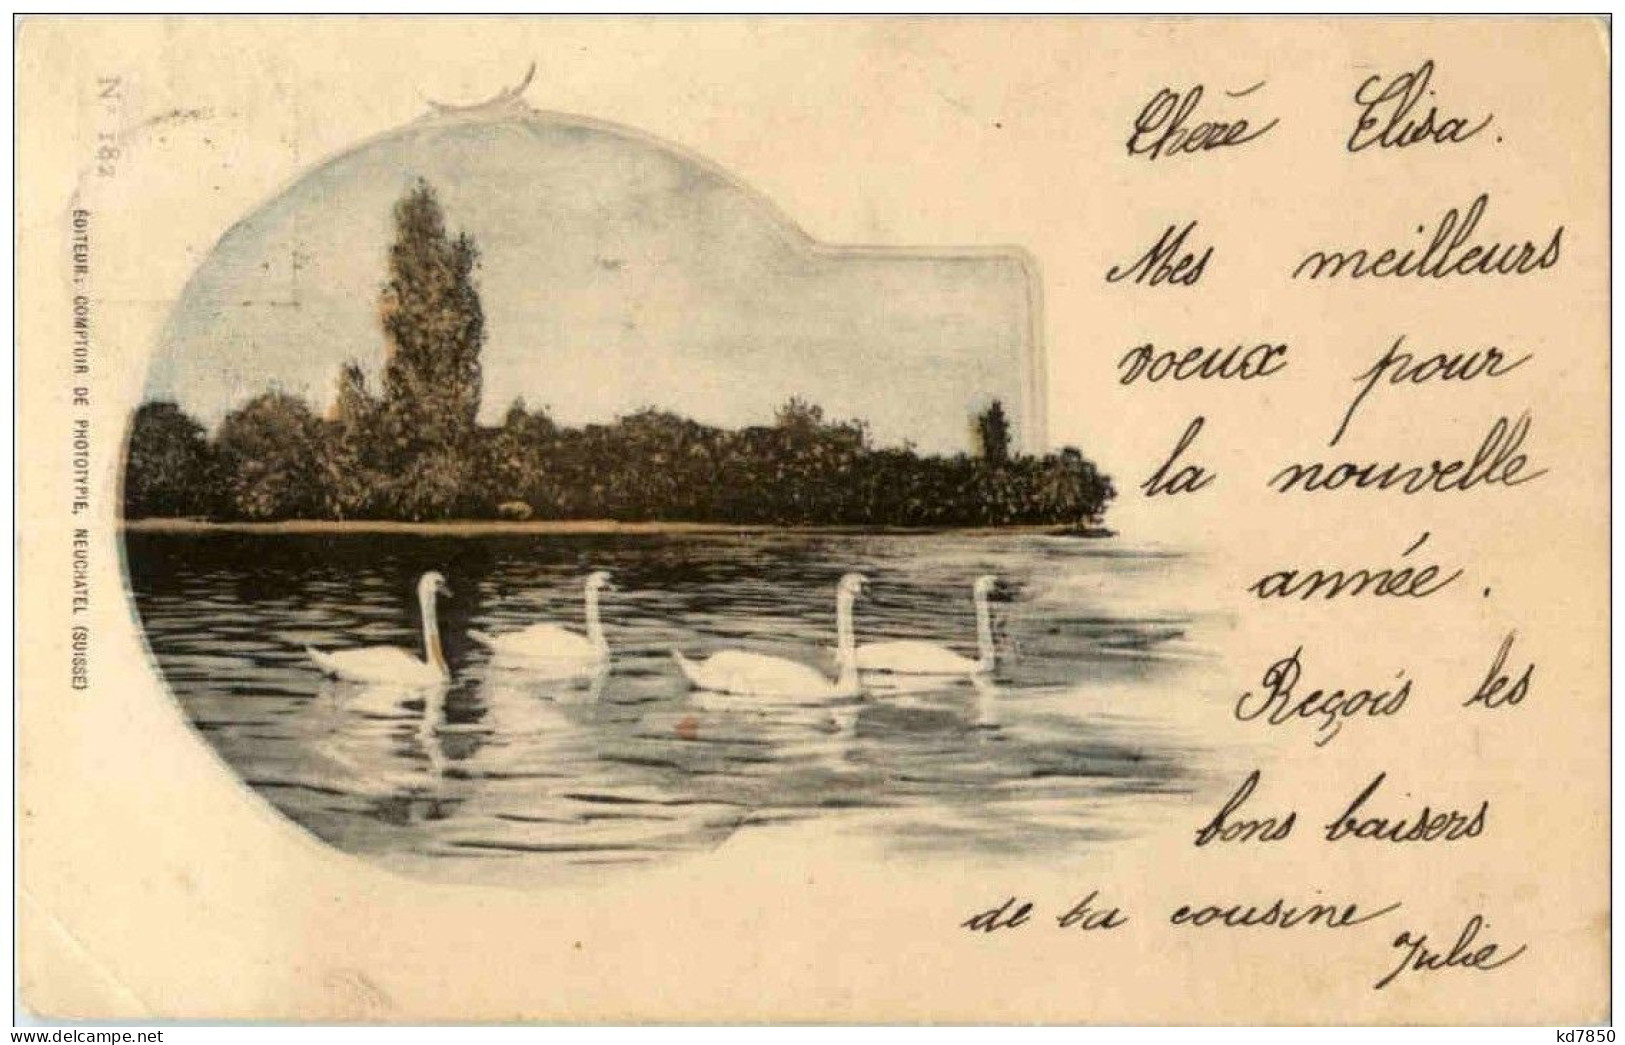 Nº 182
ÉDITEUR: COMPTOIR DE PHOTOTYPIE, NEUCHATEL (SUISSE)
Chère Elisa.
Mes meilleurs
voeux pour
la nouvelle
année.
Reçois les
bons baisers
de ta cousine
Julie
www.delcampe.net
kd7850